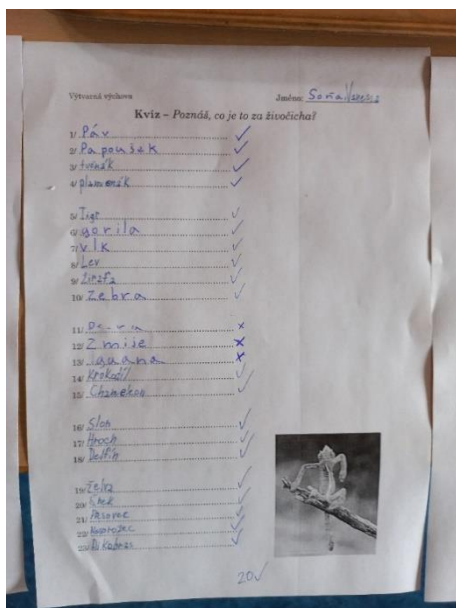 Výtvarná výchova Jméno: Soňa
Kvíz – Poznáš, co je to za živočicha?
1/ Páv ✓
2/ Papoušek ✓
3/ tučňák ✓
4/ plameňák ✓
5/ Tigr ✓
6/ gorila ✓
7/ vlk ✓
8/ Lev ✓
9/ Žirafa ✓
10/ Zebra ✓
11/ ×
12/ Zmije ×
13/ iguana ×
14/ Krokodíl ✓
15/ Chameleon ✓
16/ Slon ✓
17/ Hroch ✓
18/ Delfín ✓
19/ Želva ✓
20/ ✓
21/ Pásovec ✓
22/ Nosorožec ✓
23/ Dikobraz ✓
20✓